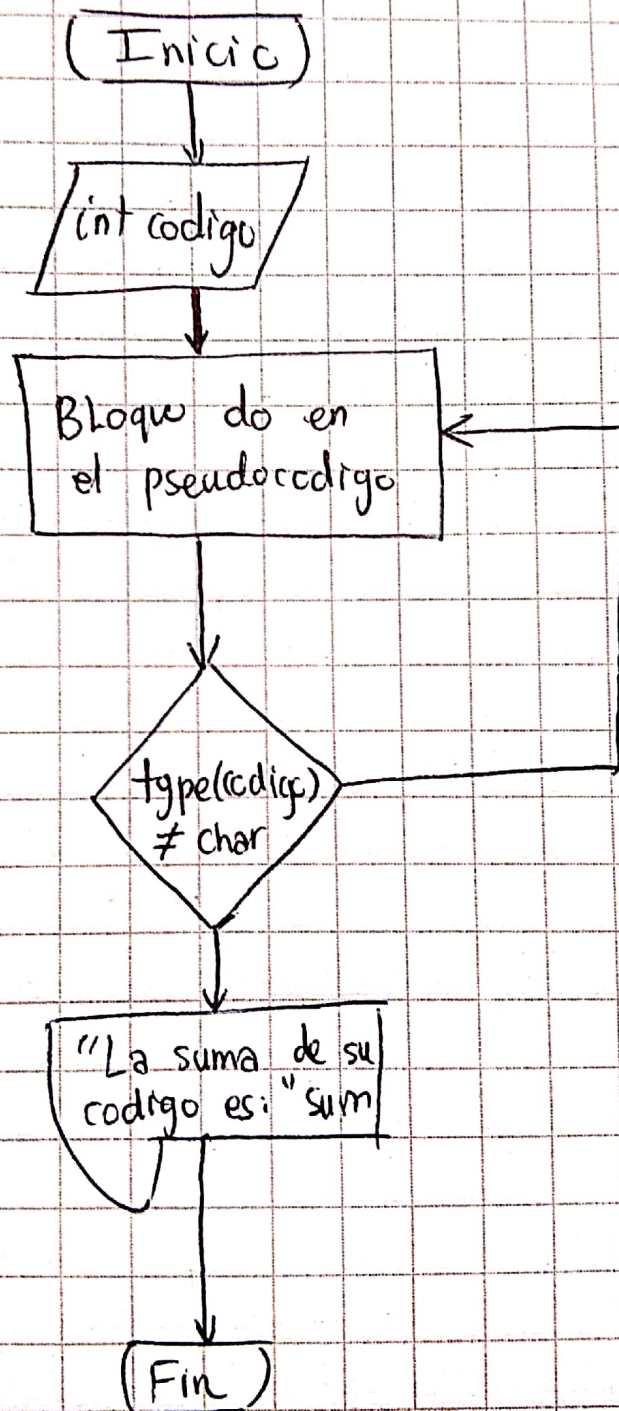 Inicio
int codigo
Bloque do en
el pseudocodigo
type(codigo)
≠ char
"La suma de su
codigo es: " sum
Fin